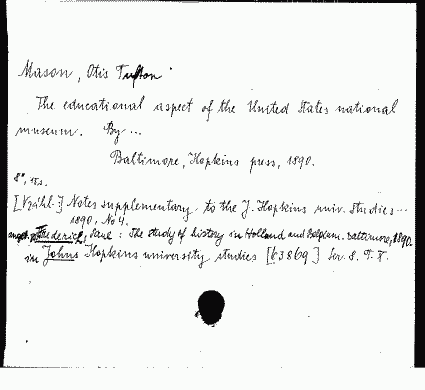 Mason, Otis Tufton
The educational aspect of the United States national
museum. By ...
Baltimore, Hopkins press, 1890.
8°,
Notes supplementary to the J. Hopkins univ. studies ...
1890, No 4.
Frederich, Paul: The study of history in Holland and Belgium. Baltimore, 1890.
in Johns Hopkins university studies [63869] Ser. 8.